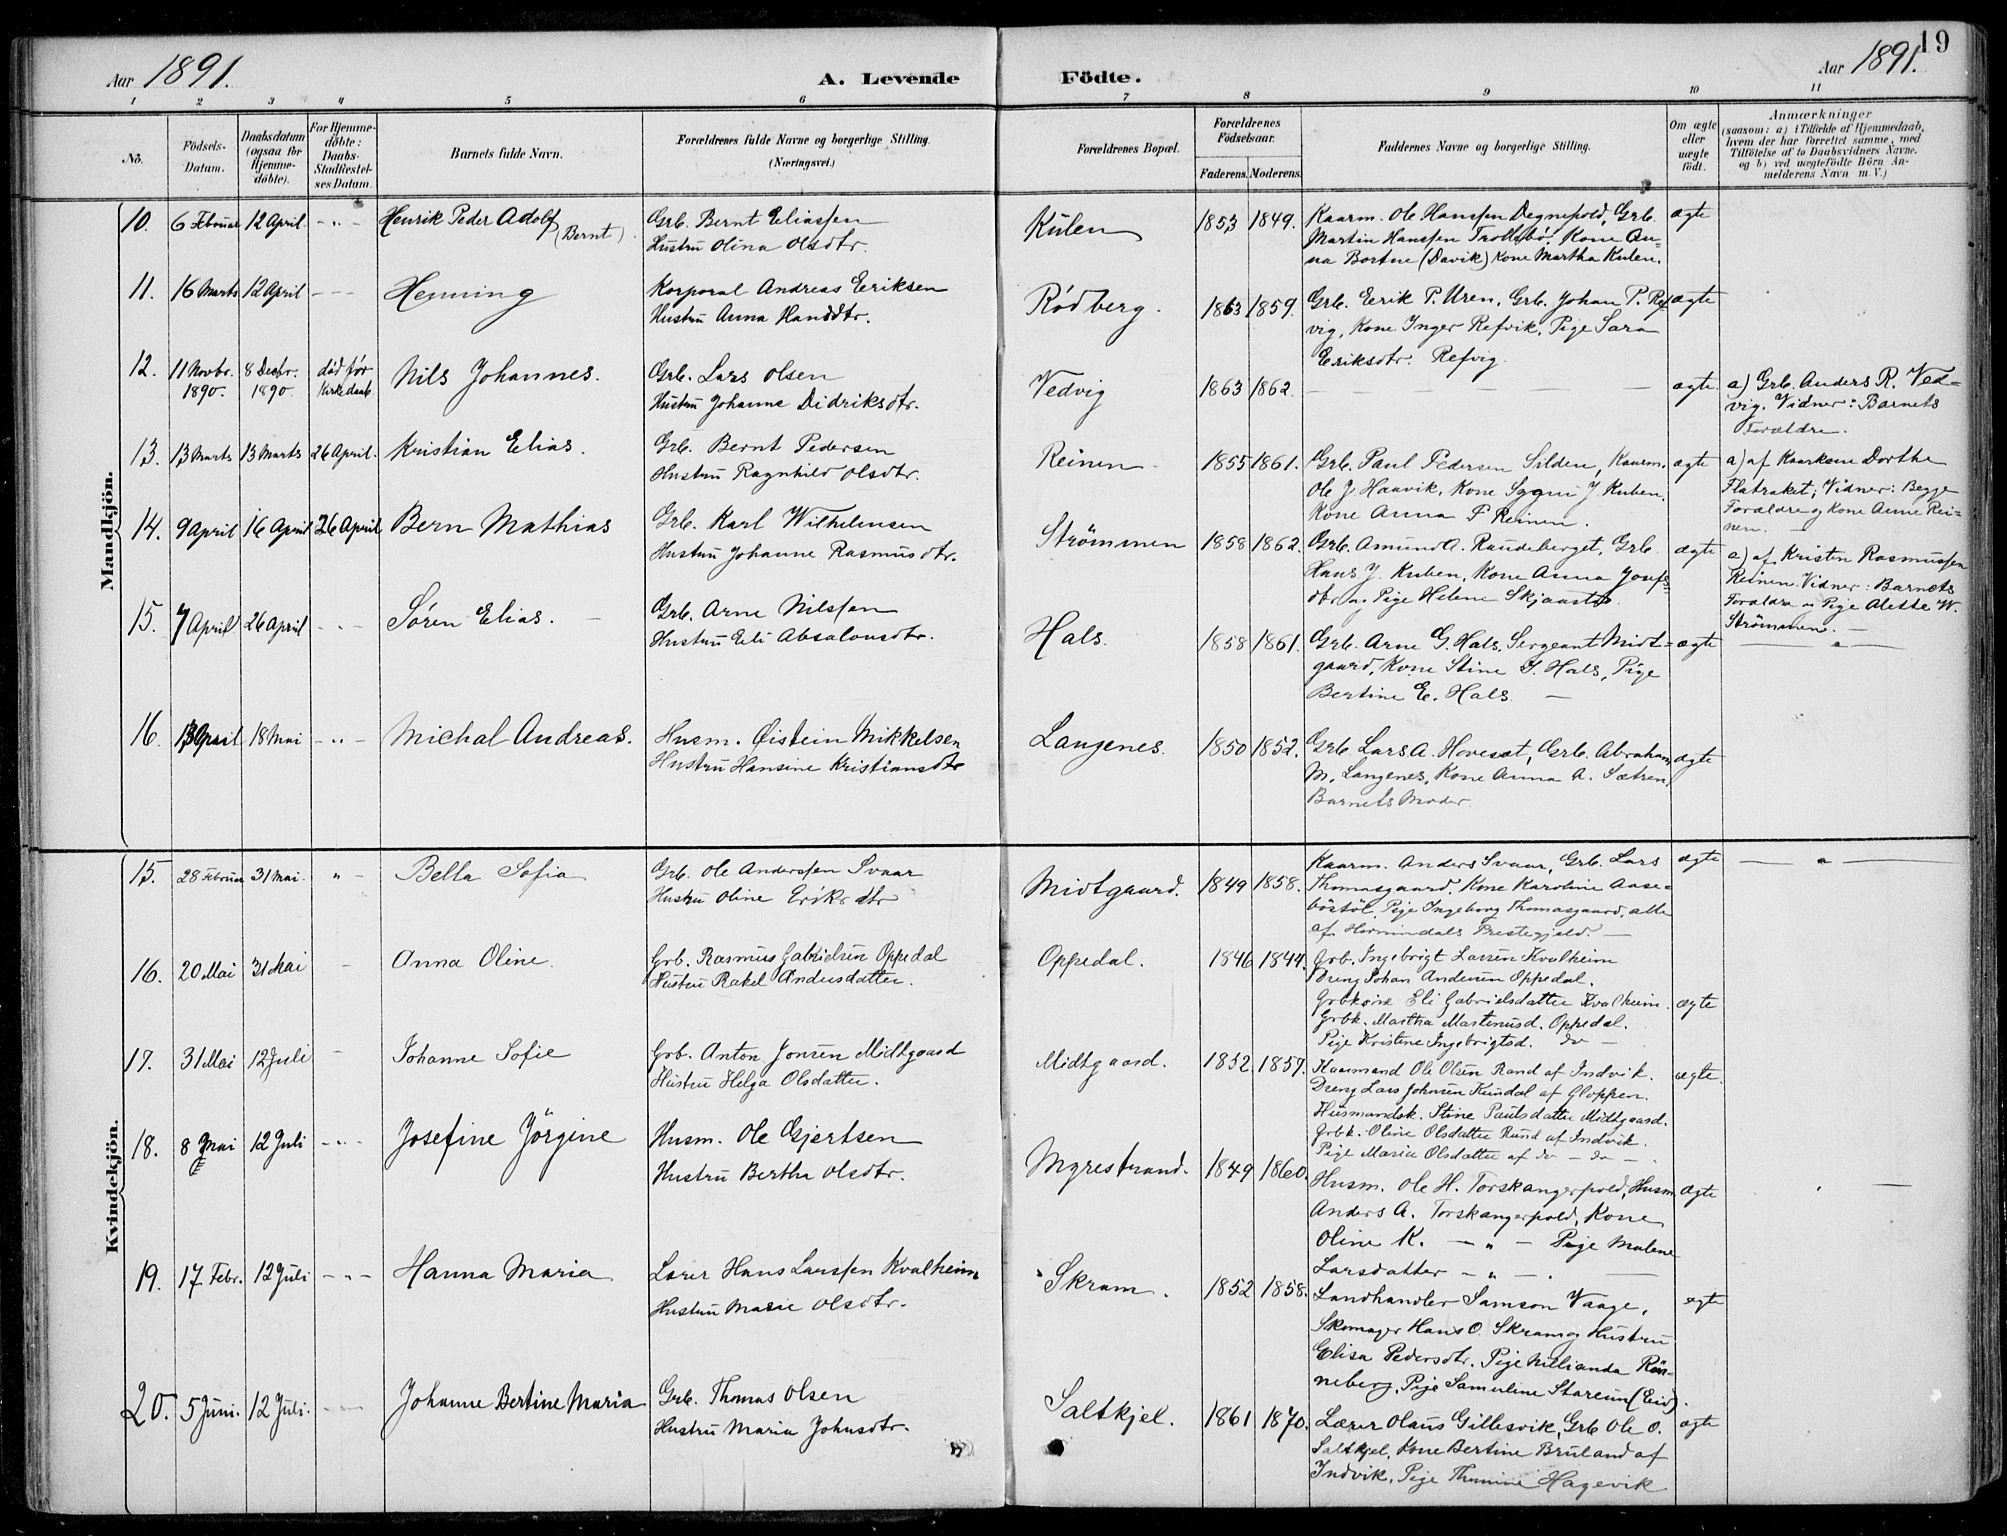 19
Aar 1891.
A. Levende Födte.
Aar 1891.
1 2 3 4 5 6 7 8 9 10 11
No.
Födsels-
Datum.
Daabsdatum
(ogsaa for
Hjemme-
döbte).
For Hjemme-
döbte:
Daabs-
Stadfæstel-
ses Datum.
Barnets fulde Navn.
Forældrenes fulde Navne og borgerlige Stilling.
(Næringsvei.)
Forældrenes Bopæl.
Forældrenes
Födselsaar.
Faderens. Moderens.
Faddernes Navne og borgerlige Stilling.
Om ægte
eller
uægte
födt.
Anmærkninger
(saasom: a) i Tilfælde af Hjemmedaab,
hvem der har forrettet samme, med
Tilföielse af to Daabsvidners Navne,
og b) ved uægtefödte Börn An-
melderens Navn m. V.)
Mandkjön.
10. 6 Februar 12 April - „ - Henrik Peder Adolf (Bernt)
Grb. Bernt Eliassen
Hustru Olina Olsdtr.
Kulen 1853 1849.
Kaarm. Ole Hanssen Degnepold, Grb.
Martin Hanssen Trollebø, Kone An-
na Bortne (Davik) Kone Martha Kulen.
ægte
11. 16 Marts 12 April - - Henning
Korporal Andreas Eriksen
Hustru Anna Hansdtr.
Rødberg. 1863 1859.
Grb. Eerik P. Uren, Grb. Johan P. Ref
vig, Kone Inger Refvik, Pige Sara
Eriksdtr. Refvig.
ægte
12. 11 Novbr. 1890. 8 Decbr. 1890. død før Kirkedaab
Nils Johannes.
Grb. Lars Olsen
Hustru Johanne Didriksdtr.
Vedvig 1863 1862. — — — — —
ægte
a) Grb. Anders R. Ved-
vig. Vidner: Barnets
Forældre.
13. 13 Marts 13 Marts 26 April. Kristian Elias.
Grb. Bernt Pedersen
Hustru Ragnhild Olsdtr.
Reinen 1855 1861.
Grb. Paul Pedersen Silden, Kaarm.
Ole J. Haavik, Kone Sygni J. Kuben,
Kone Anna P Reinen.
ægte
a) af Kaarkone Dorthe
Flatraket; Vidner: Begge
Forældre og Kone Anne Rei-
nen.
14. 9 April 16 April 26 April Bern Mathias
Grb. Karl Wilhelmsen
Hustru Johanne Rasmusdtr.
Strömmen 1858 1862.
Grb. Amund A. Raudeberget, Grb.
Hans J. Kuben, Kone Anna Josefs-
dtr og Pige Helene
ægte
a) af Kristen Rasmussen
Reinen. Vidner: Barnets
Forældre og Pige Alette W.
Strömmen.
15. 7 April 26 April - „ - Søren Elias.
Grb. Arne Nilssen
Hustru Eli Absalonsdtr.
Hals. 1858 1861.
Grb. Arne G. Hals, Sergeant Midt-
gaard, Kone Stine J. Hals, Pige
Bertine E. Hals
ægte — „ —
16. 13 April 18 Mai - „ - Michal Andreas.
Husm. Øistein Mikkelsen
Hustru Hansine Kristiansdtr
Langenes. 1850 1852.
Grb. Lars A. Hovesæt, Grb. Abraham
M. Langenes, Kone Anna A. Sætren,
Barnets Moder.
ægte
Kvindekjön.
15. 28 Februar 31 Mai „ - Bella Sofia
Grb. Ole Anderssen Svaar
Hustru Oline Eriksdtr
Midtgaard. 1849 1858.
Kaarm. Anders Svaar, Grb. Lars
Thomasgaard, Kone Karoline Aase-
bøstøl, Pige Ingeborg Thomasgaard, alle
af Hornindals Prestegjeld.
ægte — „ —
16. 20 Mai 31 Mai - Anna Oline.
Grb. Rasmus Gabrielsen Oppedal
Hustru Rakel Andersdatter.
Oppedal. 1846 1844.
Grb. Ingebrigt Larsen Kvalheim
Dreng Johan Andersen Oppedal.
Grbkone Eli Gabrielsdatter Kvalheim.
Grbk. Martha Martinusd. Oppedal.
Pige Kristine Ingebrigtsd. do —
ægte
17. 31 Mai 12 Juli - Johanne Sofie
Grb. Anton Jonsen Midtgaard
Hustru Helga Olsdatter.
Midtgaard. 1852. 1857.
Kaarmand Ole Olsen Rand af Indvik.
Dreng Lars Johnsen Kundal af Gloppen.
Husmandsk. Stine Paulsdatter Midtgaard.
Grbk. Oline Olsdatter Rand af Indvik.
Pige Maria Olsdatter af do - do -
ægte.
18. 8 Mai 12 Juli - „ - Josefine Jörgine
Husm. Ole Gjertsen
Hustru Berthe Olsdtr.
Myrestrand. 1849 1860.
Husm. Ole H. Torskangerpold, Husm
Anders A. Torskangerpold, Kone
Oline K. — „ — Pige Malene
Larsdatter — „ —
ægte
19. 17 Febr. 12 Juli - „ - Hanna Maria
Lærer Hans Larssen Kvalheim
Hustru Marie Olsdtr.
Skram. 1852 1858.
Landhandler Samson Vaage,
Skomager Hans O. Skram og Hustru
Elisa Pedersdtr. Pige Nillianda Røn-
neberg, Pige Samueline Stareim (Eid).
egte
20. 5 Juni. 12 Juli. - - Johanne Bertine Maria
Grb. Thomas Olsen
Hustru Maria Johnsdtr.
Saltkjel. 1861 1870.
Lærer Olaus Gillesvik, Grb Ole O.
Saltkjel, Kone Bertine Bruland af
Indvik, Pige Thomine Hagevik
ægte